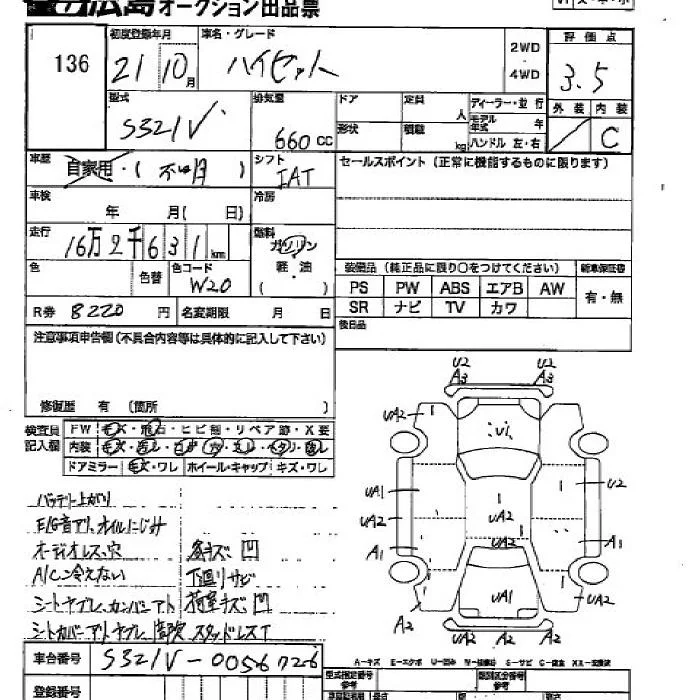 広島オークション出品票
136
初度登録年月 21 10月
車名・グレード ハイゼット
2WD
4WD
評価点 3.5
外装 内装 C
型式 S321V
排気量 660cc
ドア 定員 人
形状 積載 kg
ディーラー・並行
モデル年式 年
ハンドル 左・右
車歴 自家用・( 不明 )
シフト IAT
セールスポイント (正常に機能するものに限ります)
車検 年 月( 日)
冷房
走行 16万2千631km
燃料 ガソリン
軽・油
( )
色 色替 色コード W20
装備品 (純正品に限り○をつけてください)
新車保証書
PS PW ABS エアB AW
有・無
SR ナビ TV カワ
R券 8220円 名変期限 月 日
後日品
注意事項申告欄(不具合内容等は具体的に記入して下さい)
修復歴 有 (箇所 )
検査員記入欄
FW キズ・飛石・ヒビ割・リペア跡・X要
内装
ドアミラー キズ・ワレ ホイール・キャップ キズ・ワレ
バッテリー上がり
E/G音アリ、オイルにじみ
オーディオレス、穴
各キズ凹
A/C冷えない
下廻りサビ
シートヤブレ、カンバンアト
荷室キズ、凹
シートカバーアト ヤブレ スタッドレスT
U2 U2
A3 A3
UA2
UA1 U2
UA2 UA2
UA2
A1 A1
UA1 UA2
A2 UA2 A2 A2
車台番号 S321V-0056726
登録番号
A-キズ E-エクボ U-凹み W-補修跡 S-サビ C-腐食 XX-交換済
型式指定番号 参考
類別区分番号 参考